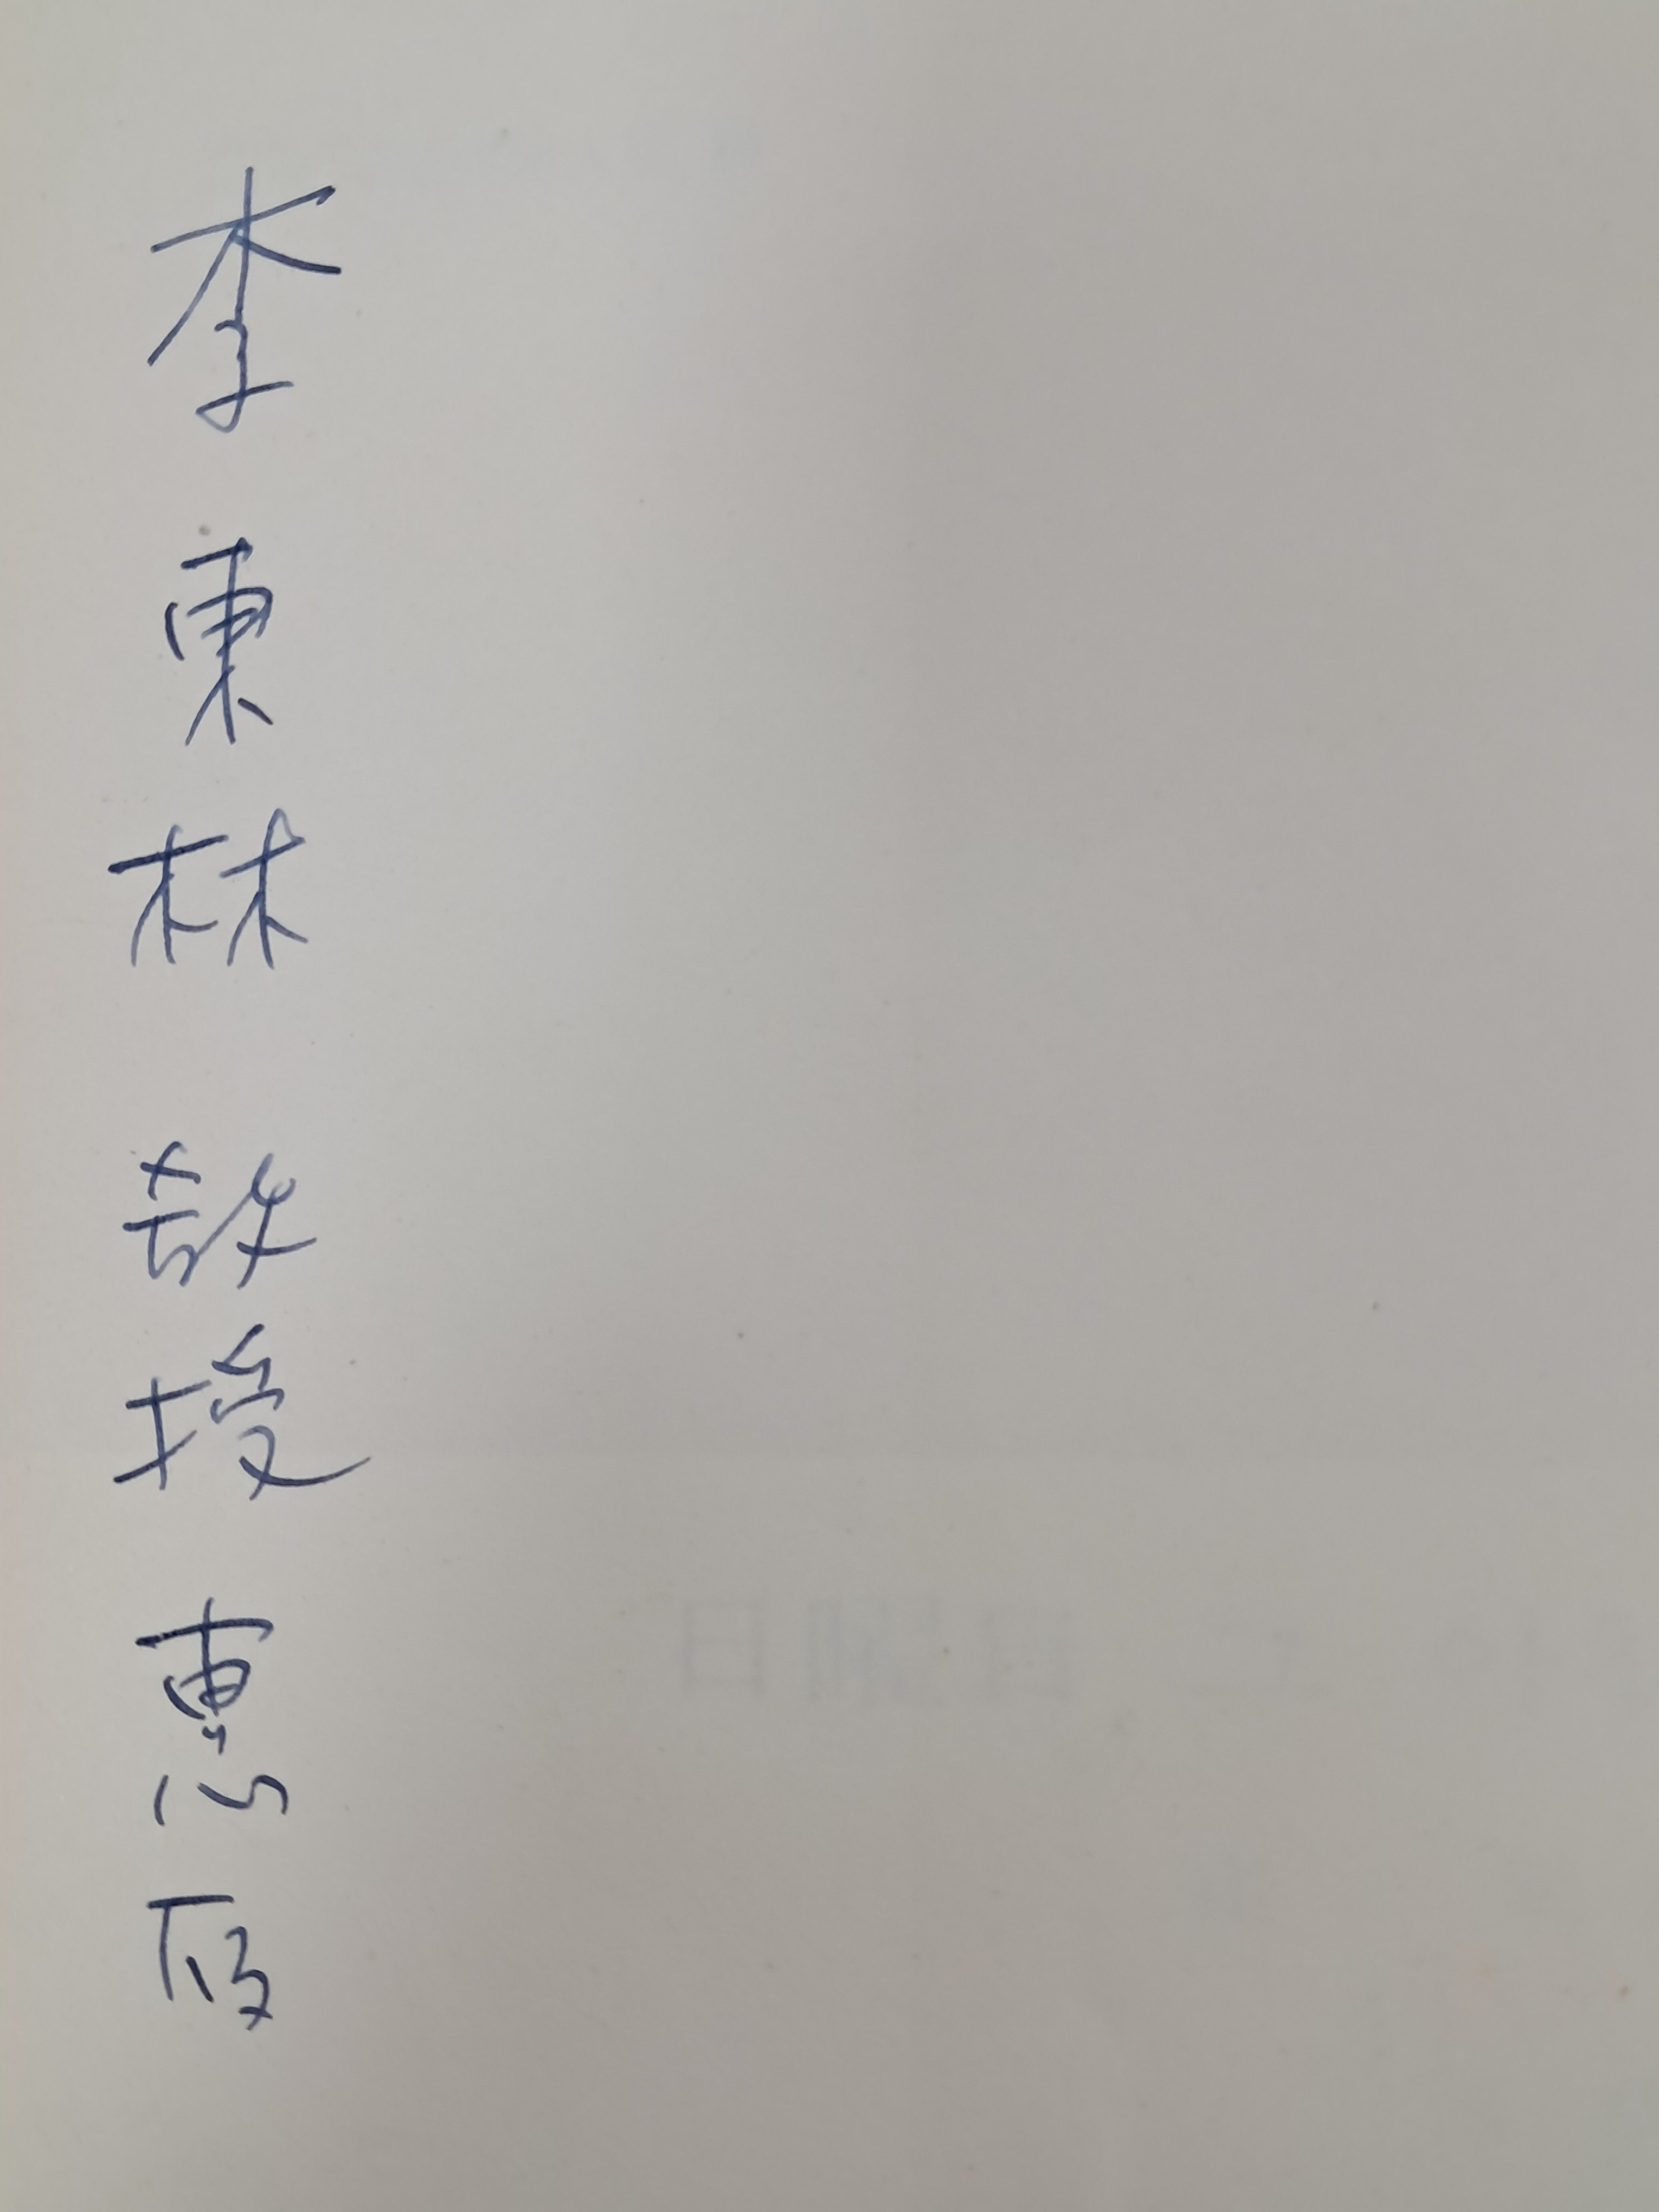 李東林教授惠存